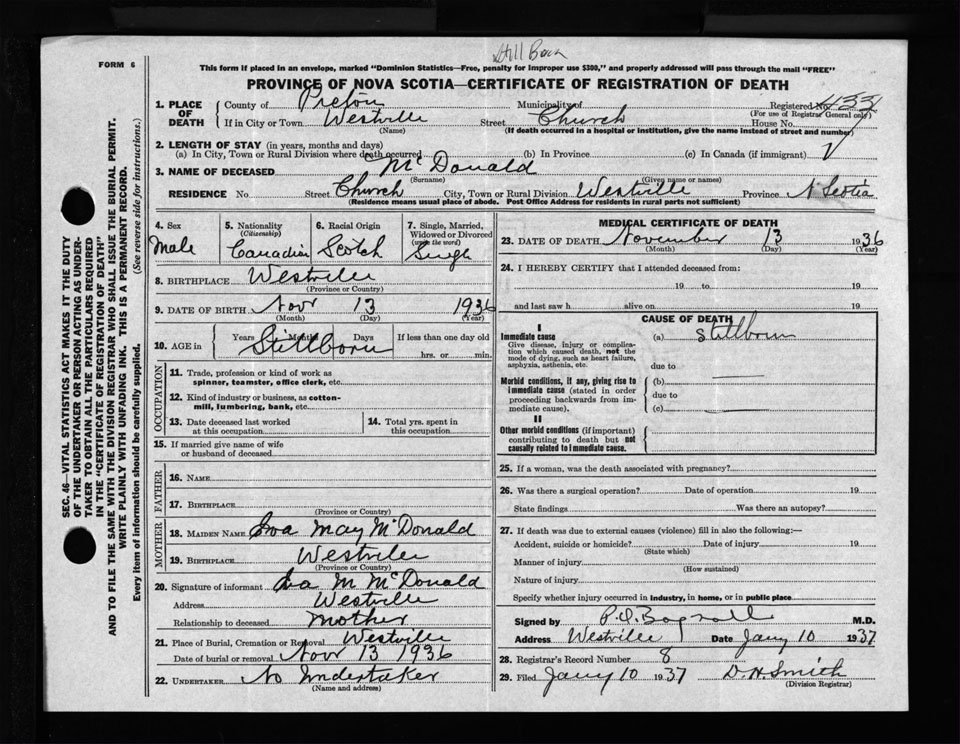 Still Born
FORM 6
This form if placed in an envelope, marked "Dominion Statistics—Free, penalty for improper use $300," and properly addressed will pass through the mail "FREE"
PROVINCE OF NOVA SCOTIA—CERTIFICATE OF REGISTRATION OF DEATH
1. PLACE OF DEATH County of Pictou Municipality of Registered No. 433
(For use of Registrar General only)
If in City or Town Westville Street Church House No.
(Name) (If death occurred in a hospital or institution, give the name instead of street and number)
2. LENGTH OF STAY (in years, months and days)
(a) In City, Town or Rural Division where death occurred (b) In Province (c) In Canada (if immigrant)
3. NAME OF DECEASED McDonald
(Surname) (Given name or names)
RESIDENCE No. Street Church City, Town or Rural Division Westville Province N Scotia
(Residence means usual place of abode. Post Office Address for residents in rural parts not sufficient)
4. Sex Male
5. Nationality (Citizenship) Canadian
6. Racial Origin Scotch
7. Single, Married, Widowed or Divorced (write the word) Single
8. BIRTHPLACE Westville
(Province or Country)
9. DATE OF BIRTH Nov 13 1936
(Month) (Day) (Year)
10. AGE in Years Months Days If less than one day old
Stillborn hrs. or min.
OCCUPATION
11. Trade, profession or kind of work as spinner, teamster, office clerk, etc.
12. Kind of industry or business, as cotton-mill, lumbering, bank, etc.
13. Date deceased last worked at this occupation
14. Total yrs. spent in this occupation
15. If married give name of wife or husband of deceased
FATHER
16. NAME
17. BIRTHPLACE
(Province or Country)
MOTHER
18. MAIDEN NAME Iva May McDonald
19. BIRTHPLACE Westville
(Province or Country)
20. Signature of informant Iva M McDonald
Address Westville
Relationship to deceased Mother
21. Place of Burial, Cremation or Removal Westville
Date of burial or removal Nov 13 1936
22. UNDERTAKER No Undertaker
(Name and address)
MEDICAL CERTIFICATE OF DEATH
23. DATE OF DEATH November 13 1936
(Month) (Day) (Year)
24. I HEREBY CERTIFY that I attended deceased from:
19 to 19
and last saw h alive on 19
CAUSE OF DEATH
I
Immediate cause (a) Stillborn
Give disease, injury or complication which caused death, not the mode of dying, such as heart failure, asphyxia, asthenia, etc.
due to
Morbid conditions, if any, giving rise to immediate cause (stated in order proceeding backwards from immediate cause).
(b)
due to
(c)
II
Other morbid conditions (if important) contributing to death but not causally related to immediate cause.
25. If a woman, was the death associated with pregnancy?
26. Was there a surgical operation? Date of operation 19
State findings Was there an autopsy?
27. If death was due to external causes (violence) fill in also the following:—
Accident, suicide or homicide? Date of injury 19
(State which)
Manner of injury
(How sustained)
Nature of injury
Specify whether injury occurred in industry, in home, or in public place
Signed by M.D.
Address Westville Date Jany 10 1937
28. Registrar's Record Number 8
29. Filed Jany 10 1937 D. H. Smith
(Division Registrar)
SEC. 46—VITAL STATISTICS ACT MAKES IT THE DUTY
OF THE UNDERTAKER OR PERSON ACTING AS UNDER-
TAKER TO OBTAIN ALL THE PARTICULARS REQUIRED
IN THE "CERTIFICATE OF REGISTRATION OF DEATH"
AND TO FILE THE SAME WITH THE DIVISION REGISTRAR WHO SHALL ISSUE THE BURIAL PERMIT.
WRITE PLAINLY WITH UNFADING INK. THIS IS A PERMANENT RECORD.
Every item of information should be carefully supplied. (See reverse side for instructions.)